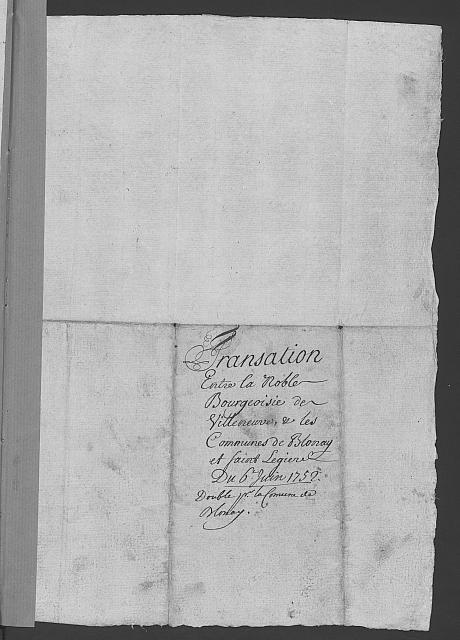 Transation
Entre la Noble
Bourgeoisie de
Villeneuve, & les
Communes de Blonay
et Saint Legier
Du 6e Juin 1752.
Double pr. la Comune de
Blonay.